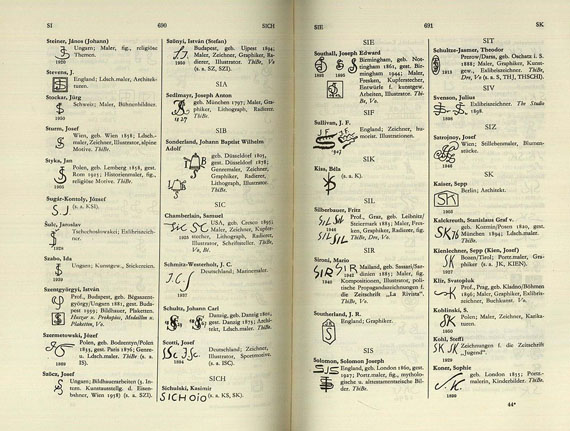 SI 690 SICH
Steiner, János (Johann)
Ungarn; Maler, fig., religiöse
Themen.
Stevens, J.
England; Ldsch.maler, Architek-
turen.
Stockar, Jürg
Schweiz; Maler, Bühnenbildner.
Sturm, Josef
Wien, geb. Wien 1858; Ldsch.-
maler, Zeichner, Illustrator, alpine
Motive. ThBe.
Styka, Jan
Polen, geb. Lemberg 1858, gest.
Rom 1925; Historienmaler, fig.,
religiöse Motive. ThBe.
Sugár-Kontoly, József
(s. a. KSI).
Šulc, Jaroslav
Tschechoslowakei; Exlibriszeich-
ner.
Szabo, Ida
Ungarn; Kunstgew., Stickereien.
Szentgyörgyi, István
Prof., Budapest, geb. Bégaszent-
györgy/Ungarn 1881, gest. Buda-
pest 1959; Bildhauer, Plaketten.
Plaketten, Va.
Szermetowski, József
Polen, geb. Bodzentyn/Polen
1833, gest. Paris 1876; Genre-
u. Ldsch.maler. ThBe. (s. a.
IS).
Szöcz, Josef
Ungarn; Bildhauerarbeiten (5. In-
tern. Kunstausstellg. d. Eisen-
bahner, Wien 1958) (s. a. SZI).
Szönyi, István (Stefan)
Budapest, geb. Ujpest 1894;
Maler, Zeichner, Graphiker, Ra-
dierer, Illustrator. ThBe, Vo.
(s. a. SZ, SZI).
SIA
Sedlmayr, Joseph Anton
geb. München 1797; Maler, Gra-
phiker, Lithograph, Radierer.
ThBe.
SIB
Sonderland, Johann Baptist Wilhelm
Adolf
geb. Düsseldorf 1805,
gest. Düsseldorf 1878;
Genremaler, Zeichner,
Graphiker, Radierer,
Lithograph, Illustrator.
ThBe.
SIC
Chamberlain, Samuel
USA, geb. Cresco 1895;
Maler, Zeichner, Kupfer-
stecher, Lithograph, Radierer,
Illustrator, Schriftsteller.
Vo, Bé.
Schmitz-Westerholt, J. C.
Deutschland; Marinemaler.
1937
Schultz, Johann Carl
geb. Danzig 1801,
gest. Danzig 1873; Archi-
tekturmaler. ThBe.
Scotti, Josef
Deutschland; Zeichner,
Illustrator, Sportmotive.
(s. a. ISC).
SICH
Sichulski, Kasimir
(s. a. KS, SK).
SIE 691 SK
SIE
Southall, Joseph Edward
Birmingham, geb. Not-
tingham 1861, gest. Bir-
mingham 1944; Maler,
Fresken, Kupferstecher,
Entwürfe f. kunstgew.
Arbeiten, Illustrator. Th-
Be, Vo.
SIF
Sullivan, J. F.
England; Zeichner, hu-
morist. Illustrationen.
SIK
Kiss, Béla
(s. a. K).
SIL
Silberbauer, Fritz
Prof., Graz, geb. Leibnitz/
Steiermark 1883; Maler, Fres-
ken, Graphiker, Radierer, fig.
ThBe, Drs, Vo.
SIR
Sironi, Mario
Mailand, geb. Sassari/Sar-
dinien 1885; Maler, fig.
Kompositionen, Illustrator, poli-
tische Propagandazeichnungen f.
die Zeitschrift „La Rivista".
ThBe, Vo.
Southerland, J. R.
England; Graphiker.
SIS
Solomon, Solomon Joseph
England, geb. London 1860, gest.
1927; Portr.maler, fig., mytholo-
gische u. alttestamentarische Bil-
der. ThBe.
SIT
Schultze-Jasmer, Theodor
Prerow/Darss, geb. Oschatz i. S.
1888; Maler, Graphiker, Kunst-
gew., Exlibriszeichner. ThBe,
Drs, Vo (s. a. S, THJ, THSCHJ).
SIV
Svenson, Julius
Exlibriszeichner. The Studio
1898.
SIZ
Sstrojnov, Josef
Wien; Stillebenmaler, Blumen-
stücke.
SK
Kaiser, Sepp
Berlin; Architekt.
Kalckreuth, Stanislaus Graf v.
geb. Kozmin/Posen 1820, gest.
München 1894; Ldsch.maler.
ThBe.
Kienlechner, Sepp (Kien, Josef)
Bozen/Tirol; Portr.maler, Gra-
phiker (s. a. JK, KIEN).
Klír, Svatopluk
Prof., Prag, geb. Kladno/Böhmen
1896; Maler, Graphiker, Exlibris-
zeichner, Buchkunst. Vo.
Koblinski, S.
Polen; Maler, Zeichner, Karika-
turen.
Kohl, Steffi
Zeichnungen f. die Zeitschrift
„Jugend".
Koner, Sophie
geb. London 1855; Portr.-
malerin, Kinderbilder. ThBe.
44*